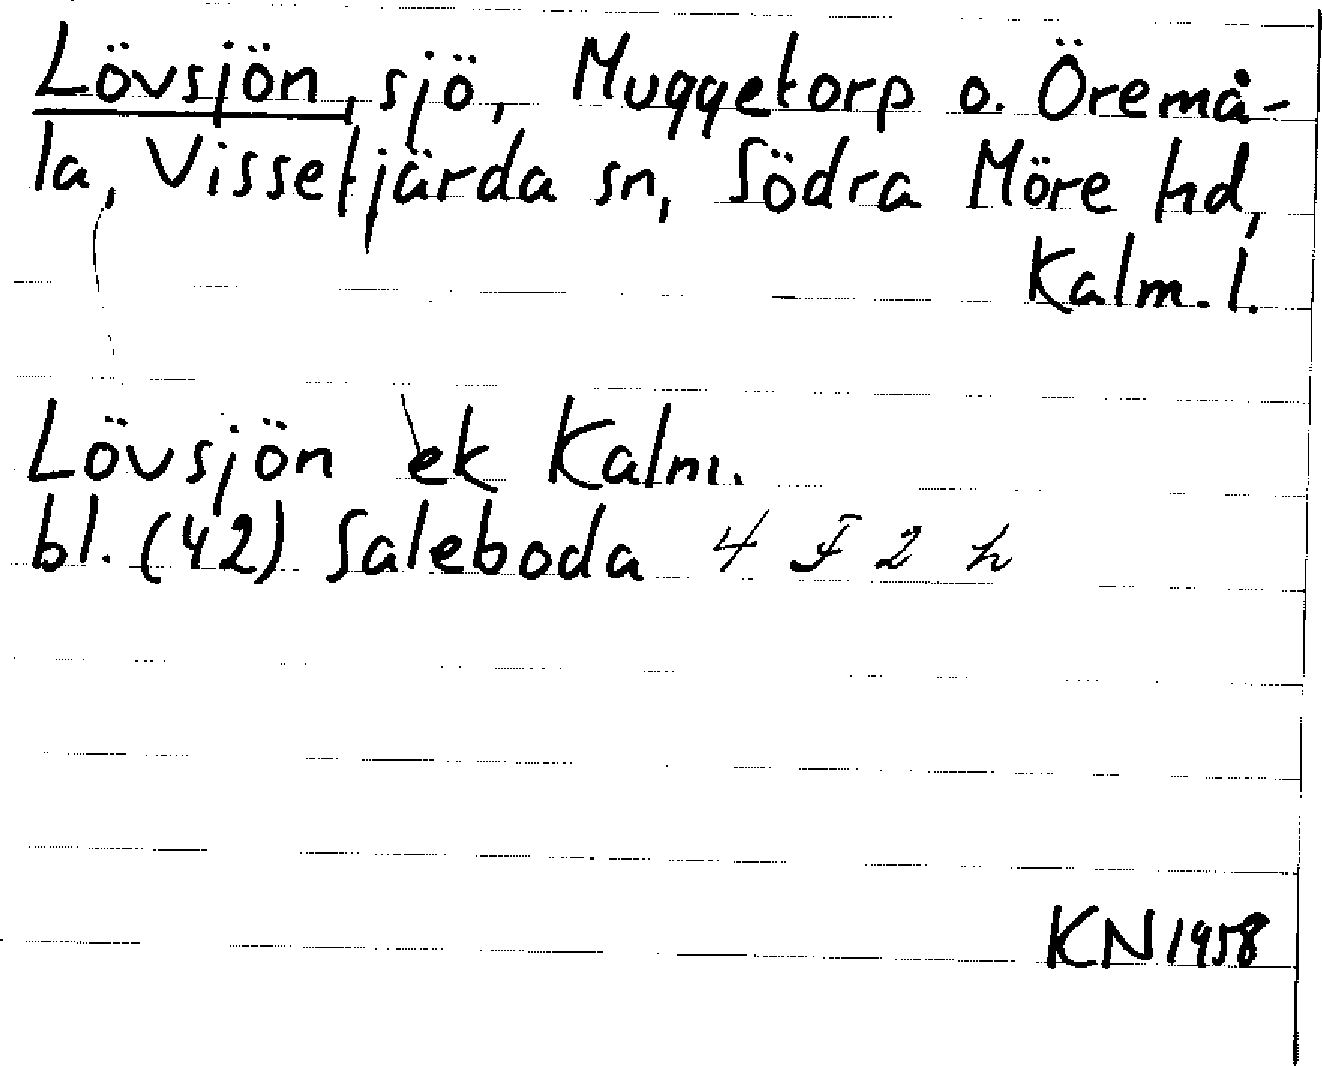 Lövsjön, sjö, Muggetorp o. Öremå-
la, Vissefjärda sn, Södra Möre hd,
Kalm. l.
Lövsjön ek Kalm.
bl. (42) Saleboda 4 F 2 h
KN 1958